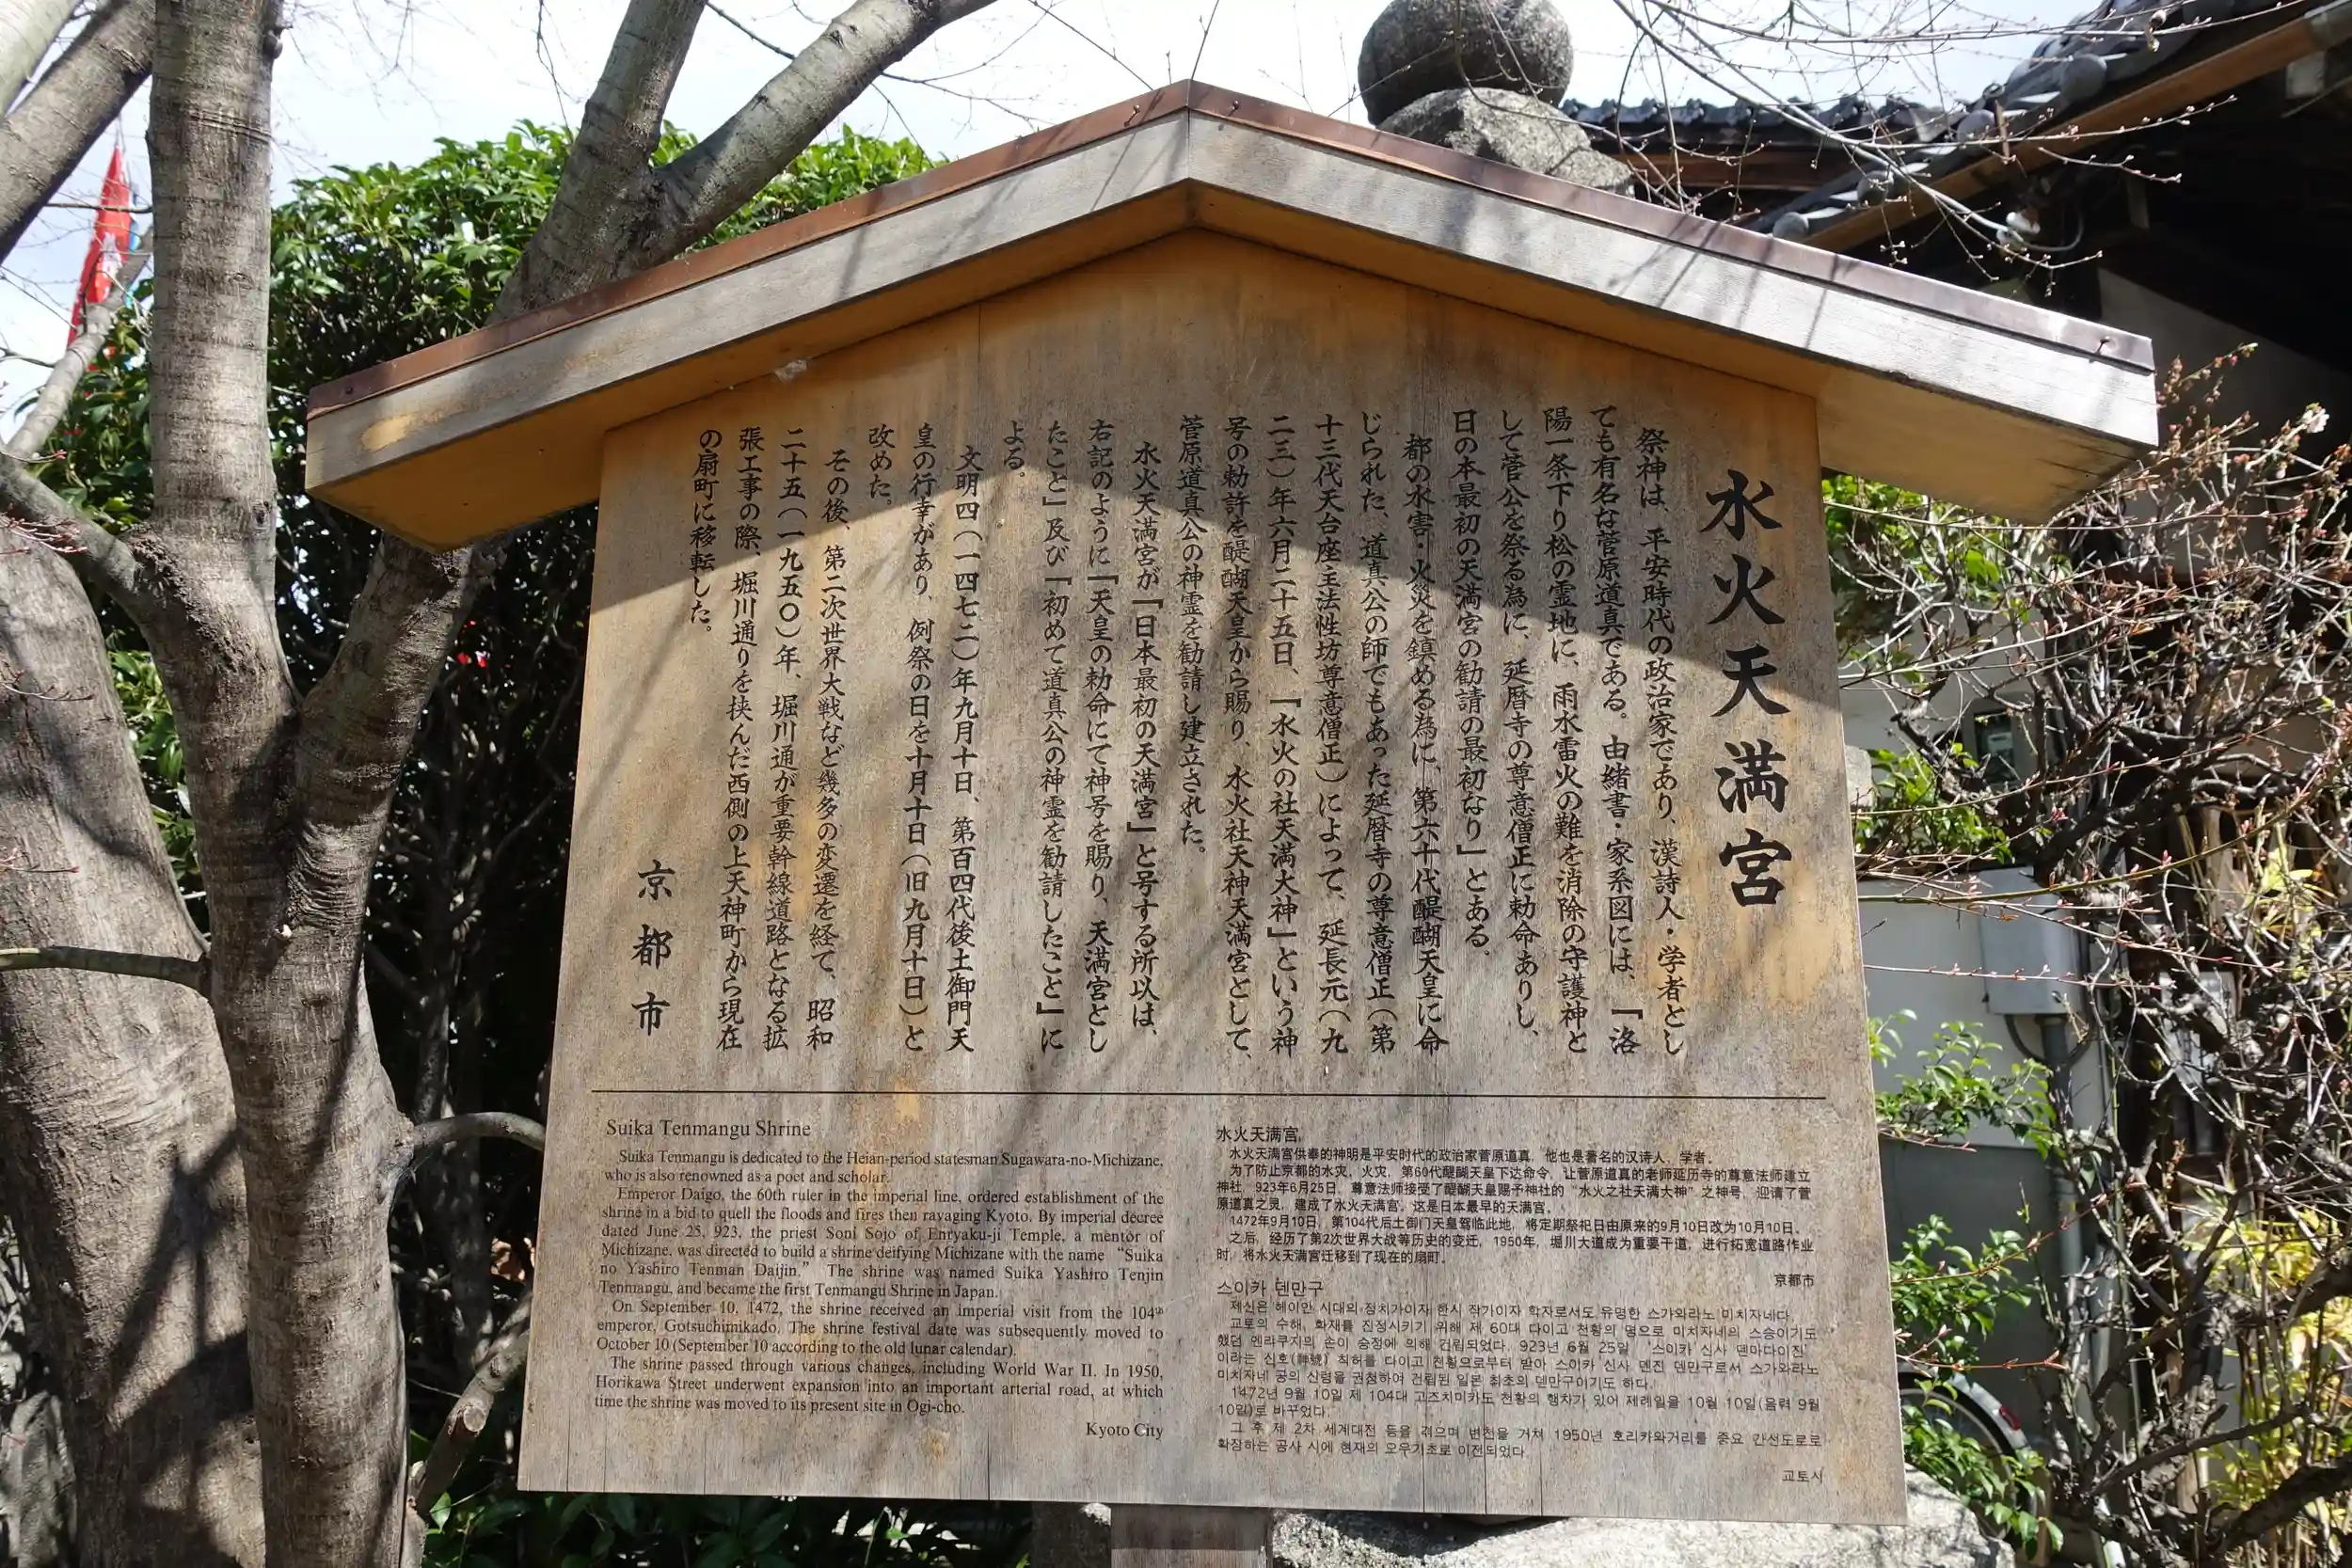 水火天満宮
祭神は、平安時代の政治家であり、漢詩人・学者とし
ても有名な菅原道真である。由緒書・家系図には、「洛
陽一条下り松の霊地に、雨水雷火の難を消除の守護神と
して菅公を祭る為に、延暦寺の尊意僧正に勅命ありし、
日の本最初の天満宮の勧請の最初なり」とある。
都の水害・火災を鎮める為に、第六十代醍醐天皇に命
じられた、道真公の師でもあった延暦寺の尊意僧正(第
十三代天台座主法性坊尊意僧正)によって、延長元(九
二三)年六月二十五日、「水火の社天満大神」という神
号の勅許を醍醐天皇から賜り、水火社天神天満宮として、
菅原道真公の神霊を勧請し建立された。
水火天満宮が「日本最初の天満宮」と号する所以は、
右記のように「天皇の勅命にて神号を賜り、天満宮とし
たこと」及び「初めて道真公の神霊を勧請したこと」に
よる。
文明四(一四七二)年九月十日、第百四代後土御門天
皇の行幸があり、例祭の日を十月十日(旧九月十日)と
改めた。
その後、第二次世界大戦など幾多の変遷を経て、昭和
二十五(一九五〇)年、堀川通が重要幹線道路となる拡
張工事の際、堀川通りを挟んだ西側の上天神町から現在
の扇町に移転した。
京都市
Suika Tenmangu Shrine
Suika Tenmangu is dedicated to the Heian-period statesman Sugawara-no-Michizane,
who is also renowned as a poet and scholar.
Emperor Daigo, the 60th ruler in the imperial line, ordered establishment of the
shrine in a bid to quell the floods and fires then ravaging Kyoto. By imperial decree
dated June 25, 923, the priest Soni Sojo of Enryaku-ji Temple, a mentor of
Michizane, was directed to build a shrine deifying Michizane with the name “Suika
no Yashiro Tenman Daijin.” The shrine was named Suika Yashiro Tenjin
Tenmangu, and became the first Tenmangu Shrine in Japan.
On September 10, 1472, the shrine received an imperial visit from the 104th
emperor, Gotsuchimikado. The shrine festival date was subsequently moved to
October 10 (September 10 according to the old lunar calendar).
The shrine passed through various changes, including World War II. In 1950,
Horikawa Street underwent expansion into an important arterial road, at which
time the shrine was moved to its present site in Ogi-cho.
Kyoto City
水火天满宫
水火天满宫供奉的神明是平安时代的政治家菅原道真，他也是著名的汉诗人，学者。
为了防止京都的水灾，火灾，第60代醍醐天皇下达命令，让菅原道真的老师延历寺的尊意法师建立
神社，923年6月25日，尊意法师接受了醍醐天皇赐予神社的“水火之社天满大神”之神号，迎请了菅
原道真之灵，建成了水火天满宫。这是日本最早的天满宫。
1472年9月10日，第104代后土御门天皇驾临此地，将定期祭祀日由原来的9月10日改为10月10日。
之后，经历了第2次世界大战等历史的变迁，1950年，堀川大道成为重要干道，进行拓宽道路作业
时，将水火天满宫迁移到了现在的扇町。
京都市
스이카 덴만구
제신은 헤이안 시대의 정치가이자 한시 작가이자 학자로서도 유명한 스가와라노 미치자네다.
교토의 수해, 화재를 진정시키기 위해 제 60대 다이고 천황의 명으로 미치자네의 스승이기도
했던 엔랴쿠지의 손이 승정에 의해 건립되었다. 923년 6월 25일 ‘스이카 신사 덴마다이진’
이라는 신호(神號) 칙허를 다이고 천황으로부터 받아 스이카 신사 덴진 덴만구로서 스가와라노
미치자네 공의 신령을 권청하여 건립된 일본 최초의 덴만구이기도 하다.
1472년 9월 10일 제 104대 고즈치미카도 천황의 행차가 있어 제례일을 10월 10일(음력 9월
10일)로 바꾸었다.
그 후 제 2차 세계대전 등을 겪으며 변천을 거쳐 1950년 호리카와거리를 중요 간선도로로
확장하는 공사 시에 현재의 오우기초로 이전되었다.
교토시